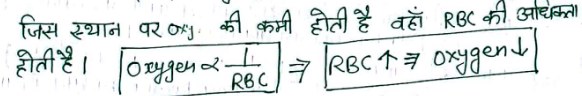 जिस स्थान पर oxy. की कमी होती है वहाँ RBC की अधिकता
होती है। Oxygen ∝ 1/RBC ⇒ RBC ↑ ⇒ Oxygen ↓